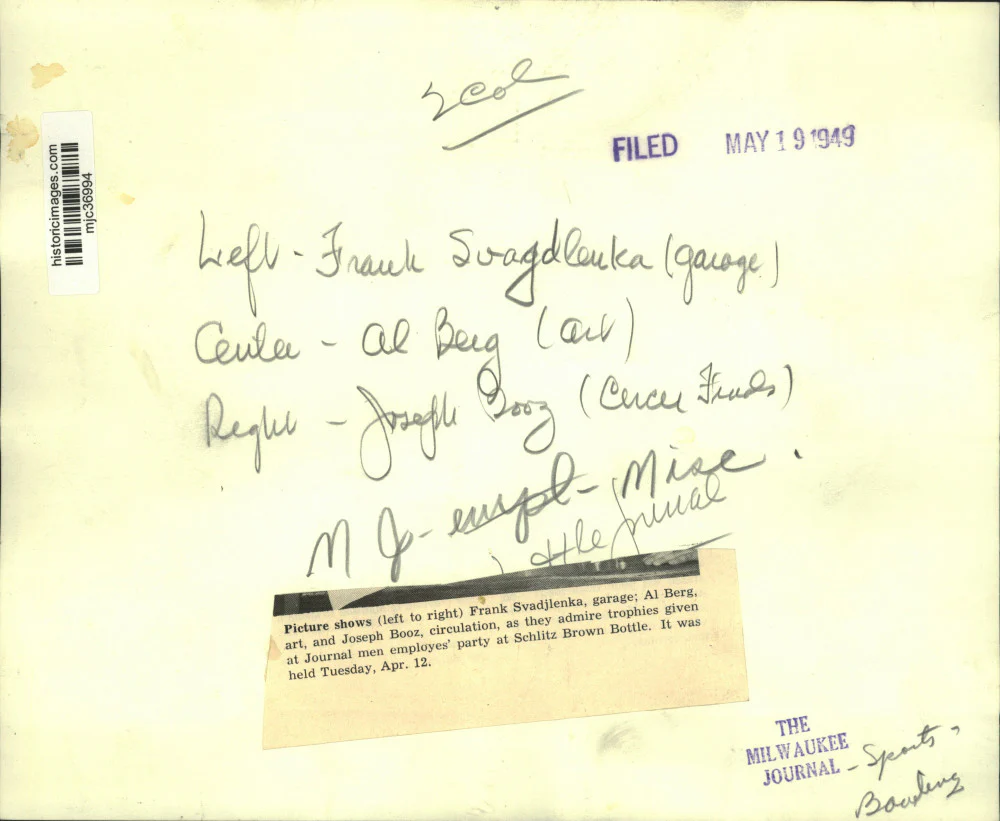 2 col
FILED MAY 19 1949
historicimages.com
mjc36994
Left - Frank Svagdlenka (garage)
Center - Al Berg (art)
Right - Joseph Booz
MJ - empl - Misc.
Picture shows (left to right) Frank Svadjlenka, garage; Al Berg,
art, and Joseph Booz, circulation, as they admire trophies given
at Journal men employes' party at Schlitz Brown Bottle. It was
held Tuesday, Apr. 12.
THE
MILWAUKEE
JOURNAL - Sports -
Bowling